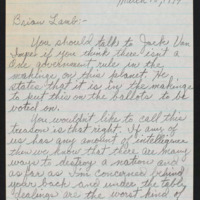 March 15, 1997
Brian Lamb:-
You should talk to Jack Van
Impe if you think there isn't a
One government rule in the
makings on this planet. He
states that it is in the makings
to put this on the ballots to be
voted on.
You wouldn't like to call this
treason is that right. If any of
us has any amount of intelligence
then we know that there are many
ways to destroy a nation and as
far as I'm concerned behind
your back and under the table
dealings are the worst kind of